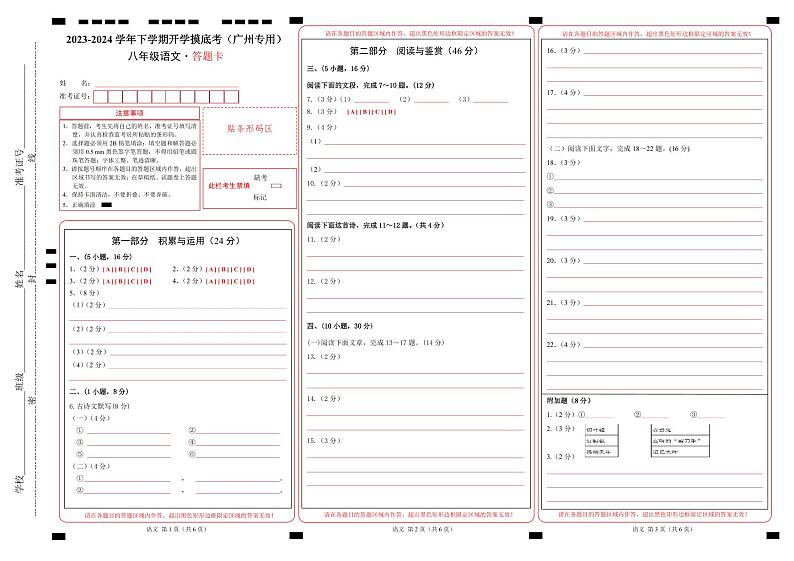 学校
班级
姓名
准考证号
密
封
线
2023-2024 学年下学期开学摸底考（广州专用）
八年级语文·答题卡
姓 名：
准考证号：
注意事项
1．答题前，考生先将自己的姓名，准考证号填写清
楚，并认真检查监考员所粘贴的条形码。
2．选择题必须用 2B 铅笔填涂；填空题和解答题必
须用 0.5 mm 黑色签字笔答题，不得用铅笔或圆
珠笔答题；字体工整、笔迹清晰。
3．请按题号顺序在各题目的答题区域内作答，超出
区域书写的答案无效；在草稿纸、试题卷上答题
无效。
4．保持卡面清洁，不要折叠、不要弄破。
5．正确填涂
贴条形码区
此栏考生禁填
缺考
标记
第一部分 积累与运用（24 分）
一、(5 小题，16 分)
1．（2 分）[A] [B] [C] [D] 2．（2 分）[A] [B] [C] [D]
3．（2 分）[A] [B] [C] [D] 4．（2 分）[A] [B] [C] [D]
5．（8 分）
（1）（2 分）
（2）（2 分）
（3）（2 分）
（4）（2 分）
二、(1 小题，8 分)
6. 古诗文默写(8 分)
（一）（4 分）
① ②
③ ④
⑤ ⑥
（二）（4 分）
① ，
② ，
请在各题目的答题区域内作答，超出黑色矩形边框限定区域的答案无效！
语文 第 1 页（共 6 页）
请在各题目的答题区域内作答，超出黑色矩形边框限定区域的答案无效！
第二部分 阅读与鉴赏（46 分）
三、(5 小题，16 分)
阅读下面的文段，完成 7～10 题。(12 分)
7．（3 分）（1） （2） （3）
8．（3 分） [A] [B] [C] [D]
9．（4 分）
（1）
（2）
10．（2 分）
阅读下面这首诗，完成 11～12 题。（共 4 分）
11．（2 分）
12．（2 分）
四、(10 小题，30 分)
(一)阅读下面文章，完成 13～17 题。(14 分)
13．（2 分）
14．（2 分）
15．（3 分）
请在各题目的答题区域内作答，超出黑色矩形边框限定区域的答案无效！
语文 第 2 页（共 6 页）
请在各题目的答题区域内作答，超出黑色矩形边框限定区域的答案无效！
16．（3 分）
17．（4 分）
（二）阅读下面文字，完成 18～22 题。(16 分)
18．（3 分）
①
②
③
19．（3 分）
20．（3 分）
21．（3 分）
22．（4 分）
附加题（8 分）
1．（2 分）① ② ③
2．（3 分）
3．（2 分）
请在各题目的答题区域内作答，超出黑色矩形边框限定区域的答案无效！
语文 第 3 页（共 6 页）